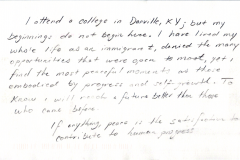 I attend a college in Danville, KY, but my
beginnings do not begin here. I have lived my
whole life as an immigrant, denied the many
opportunities that were open to most, yet I
find the most peaceful moments are those
embodied by progress and
know I will reach a future better than those
who came before
If anything, peace is the satisfaction to
contribute to human progress